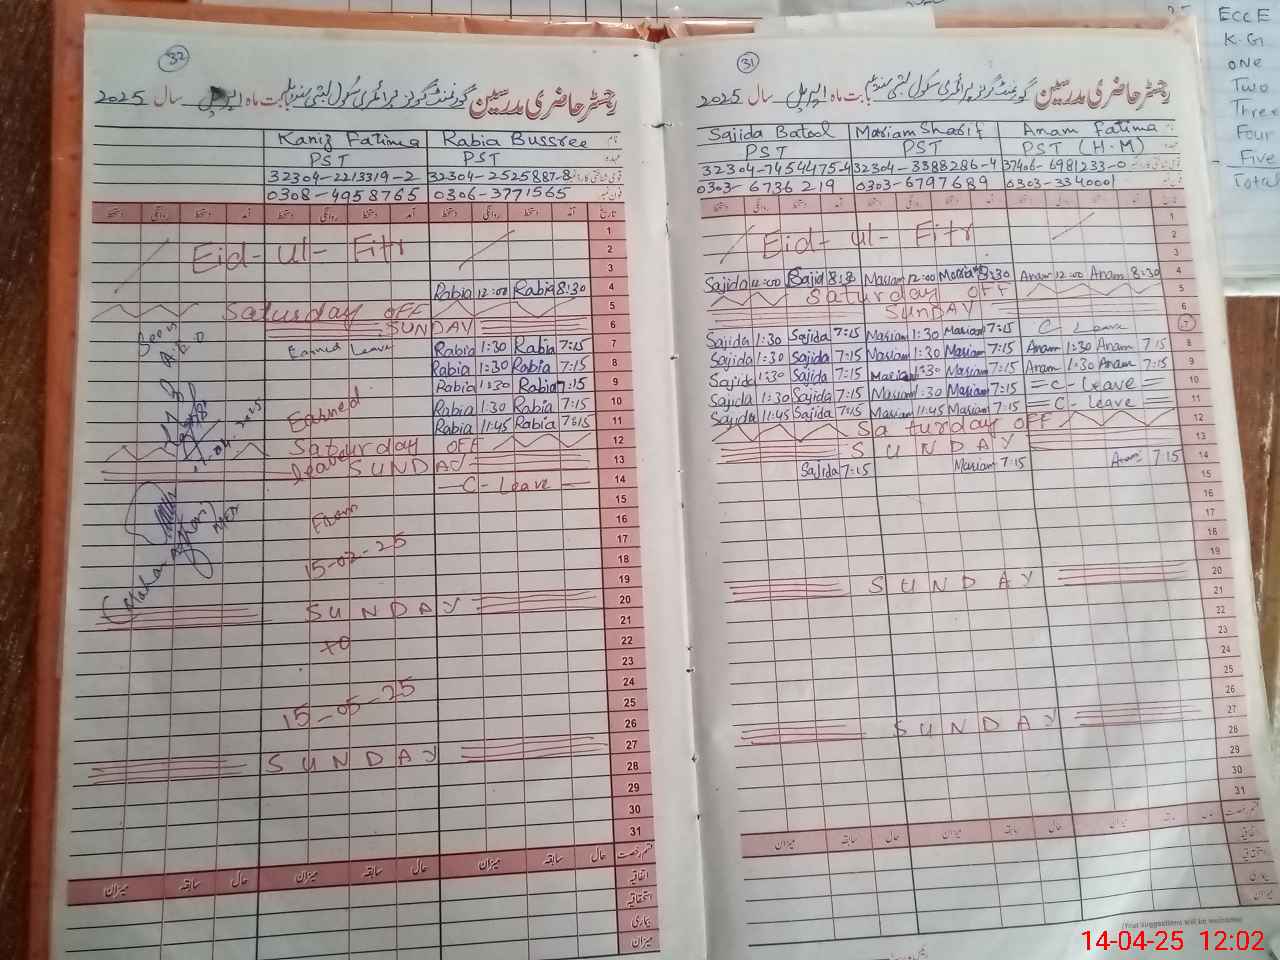 32
رجسٹر حاضری مدرسین گورنمنٹ گرلز پرائمری سکول بابت ماہ اپریل سال 2025
Kaniz Fatima Rabia Bussree نام
PST PST عہدہ
32304-2213319-2 32304-2525887-8
0308-4958765 0306-3771565 فون نمبر
دستخط روانگی دستخط آمد دستخط روانگی دستخط آمد دستخط روانگی دستخط آمد تاریخ
1
Eid-ul-Fitr 2
3
Rabia 12:00 Rabia 8:30 4
Saturday OFF 5
SUNDAY 6
Earned Leave Rabia 1:30 Rabia 7:15 7
Rabia 1:30 Rabia 7:15 8
Rabia 1:30 Rabia 7:15 9
Earned Rabia 1:30 Rabia 7:15 10
Rabia 11:45 Rabia 7:15 11
Saturday OFF 12
leave SUNDAY 13
C-Leave 14
15
From 16
17
15-02-25 18
19
SUNDAY 20
21
to 22
23
24
15-05-25 25
26
SUNDAY 27
28
29
30
31
میزان سابقہ حال میزان سابقہ حال میزان سابقہ حال قسم رخصت
اتفاقیہ
استحقاقیہ
بیماری
میزان
31
رجسٹر حاضری مدرسین گورنمنٹ گرلز پرائمری سکول بابت ماہ اپریل سال 2025
Sajida Batool Mariam Sharif Anam Fatima نام
PST PST PST (H.M) عہدہ
32304-7454475-4 32304-3388286-4 37406-6981233-0
0303-6736219 0303-6797689 0303-3340001 فون نمبر
دستخط روانگی دستخط آمد دستخط روانگی دستخط آمد دستخط روانگی دستخط آمد تاریخ
1
Eid-ul-Fitr 2
3
Sajida 12:00 Sajida 8:30 Mariam 12:00 Mariam 8:30 Anam 12:00 Anam 8:30 4
Saturday OFF 5
SUNDAY 6
Sajida 1:30 Sajida 7:15 Mariam 1:30 Mariam 7:15 C Leave 7
Sajida 1:30 Sajida 7:15 Mariam 1:30 Mariam 7:15 Anam 1:30 Anam 7:15 8
Sajida 1:30 Sajida 7:15 Mariam 1:30 Mariam 7:15 Anam 1:30 Anam 7:15 9
Sajida 1:30 Sajida 7:15 Mariam 1:30 Mariam 7:15 C-Leave 10
Sajida 11:45 Sajida 7:15 Mariam 11:45 Mariam 7:15 C-Leave 11
Saturday OFF 12
SUNDAY 13
Sajida 7:15 Mariam 7:15 Anam 7:15 14
15
16
17
18
19
SUNDAY 20
21
22
23
24
25
26
SUNDAY 27
28
29
30
31
میزان سابقہ حال میزان سابقہ حال میزان سابقہ حال قسم رخصت
اتفاقیہ
استحقاقیہ
بیماری
میزان
(Your Suggestions will be welcome)
EccE
K.G
one
Two
Three
Four
Five
Total
14-04-25 12:02